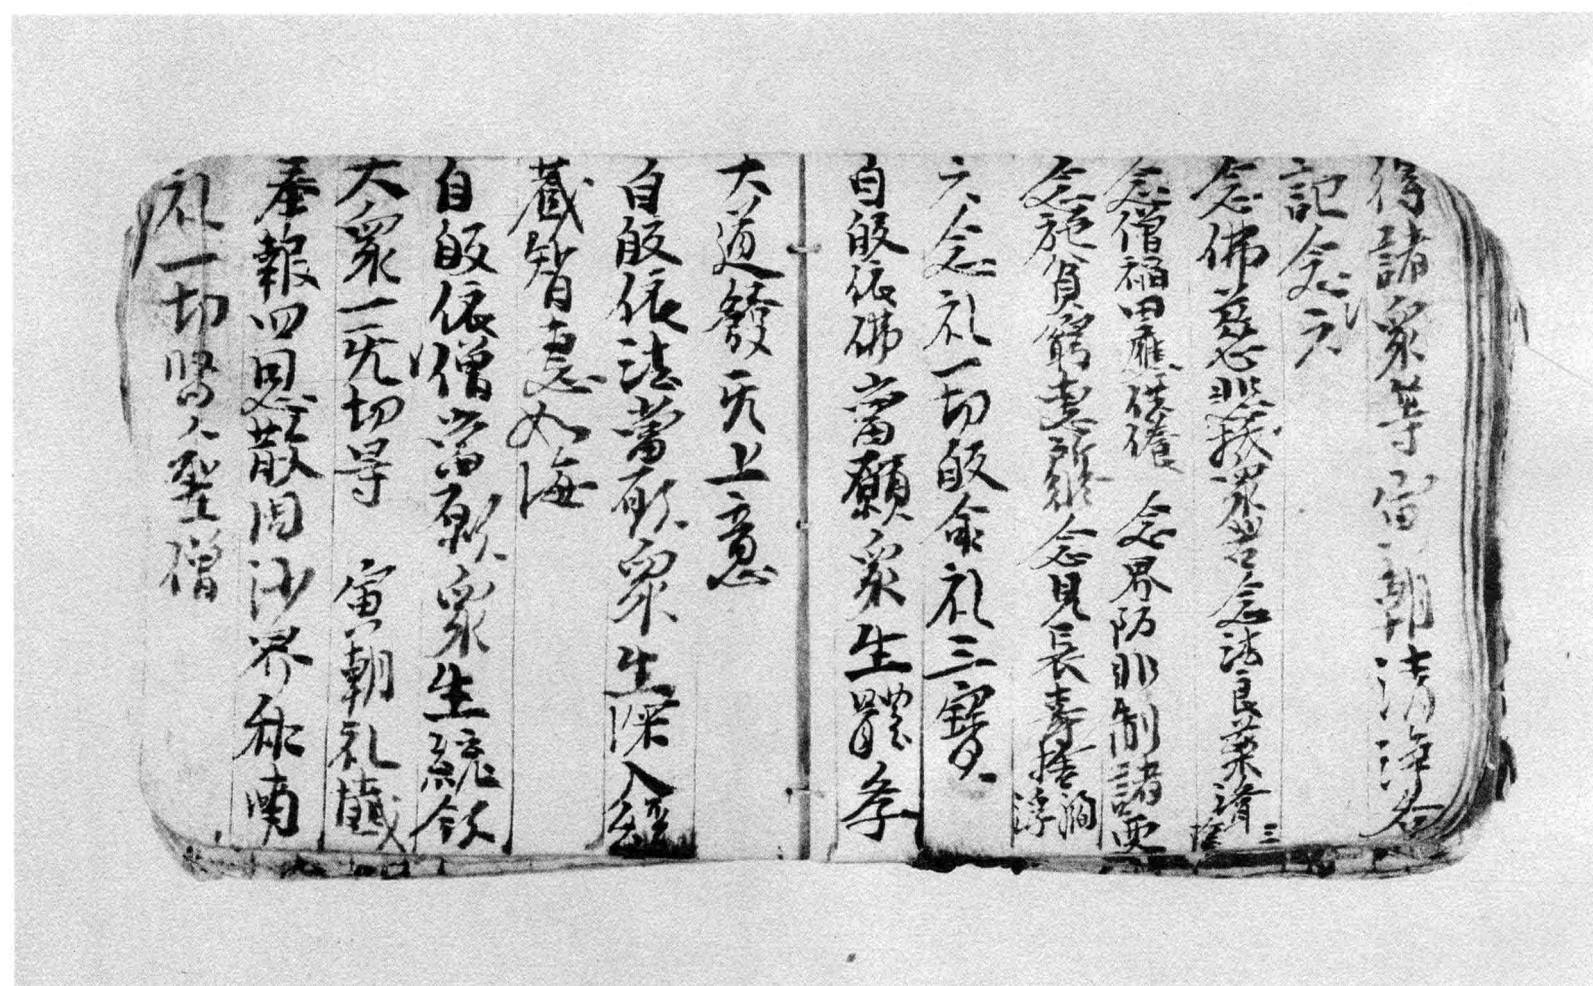 得諸衆等寅朝清淨各
記念六
念佛慈悲拔衆苦念法良藥消三
念僧福田應供養 念界防非制諸惡
念施貧窮惠 念見長壽捨
六念礼一切皈命礼三寶
自皈依佛當願衆生體
大道發无上意
自皈依法當願衆生深入經
蔵智恵如海
自皈依僧當願衆生統領
大衆一切无导 寅朝礼懴
奉報四恩散周沙界和南
礼一切賢聖僧